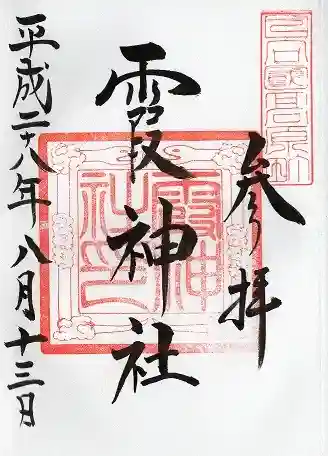 参拝
霞神社
平成二十八年八月十三日
霞神
社印